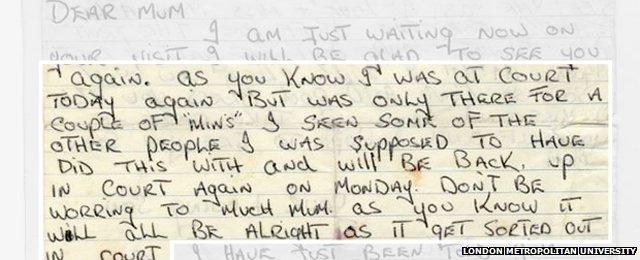 DEAR MUM
I AM JUST WAITING NOW ON
YOUR VISIT I WILL BE GLAD TO SEE YOU
again. as you know I was at COURT
TODAY again BUT was ONLY THERE FOR A
COUPLE OF "MINS" I SEEN SOME OF THE
OTHER PEOPLE I WAS SUPPOSED TO HAVE
DID THIS WITH and will BE BACK, up
IN COURT Again ON MONDAY. DON'T BE
WORRING TO MUCH MUM. as you KNOW IT
WILL all BE ALRIGHT as IT GET SORTED OUT
IN COURT I HAVE JUST BEEN
LONDON METROPOLITAN UNIVERSITY